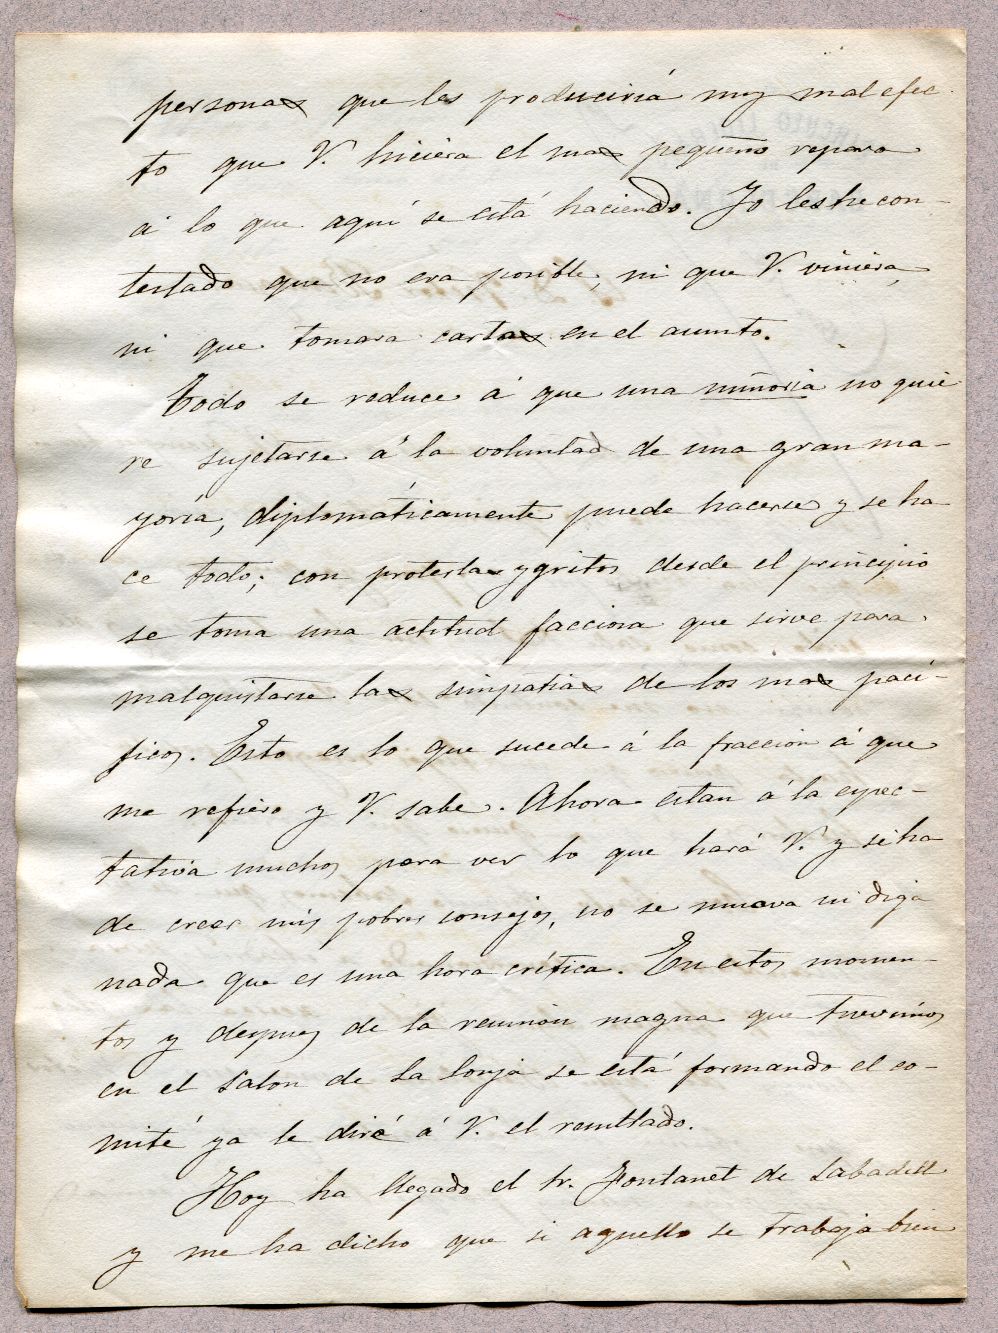 personas que les produciria muy mal efec-
to que V. hiciera el mas pequeño reparo
á lo que aquí se está haciendo. Yo les he con-
testado que no era posible, ni que V. viniera,
ni que tomara cartas en el asunto.
Todo se reduce á que una miñoria no quie
re sujetarse á la voluntad de una gran ma-
yoría, diplomáticamente puede hacerse y se ha
ce todo; con protestas y gritos desde el principio
se toma una actitud facciosa que sirve para
malquistarse las simpatias de los mas pací-
ficos. Esto es lo que sucede á la fracción á que
me refiero y V. sabe. Ahora estan á la expec-
tativa muchos para ver lo que hará V. y si ha
de creer mis pobres consejos, no se mueva ni diga
nada que es una hora crítica. En estos momen-
tos y despues de la reunion magna que tuvimos
en el Salon de La Lonja se está formando el co-
mité ya le diré á V. el resultado.
Hoy ha llegado el Sr. Fontanet de Sabadell
y me ha dicho que si aquello se trabaja bien